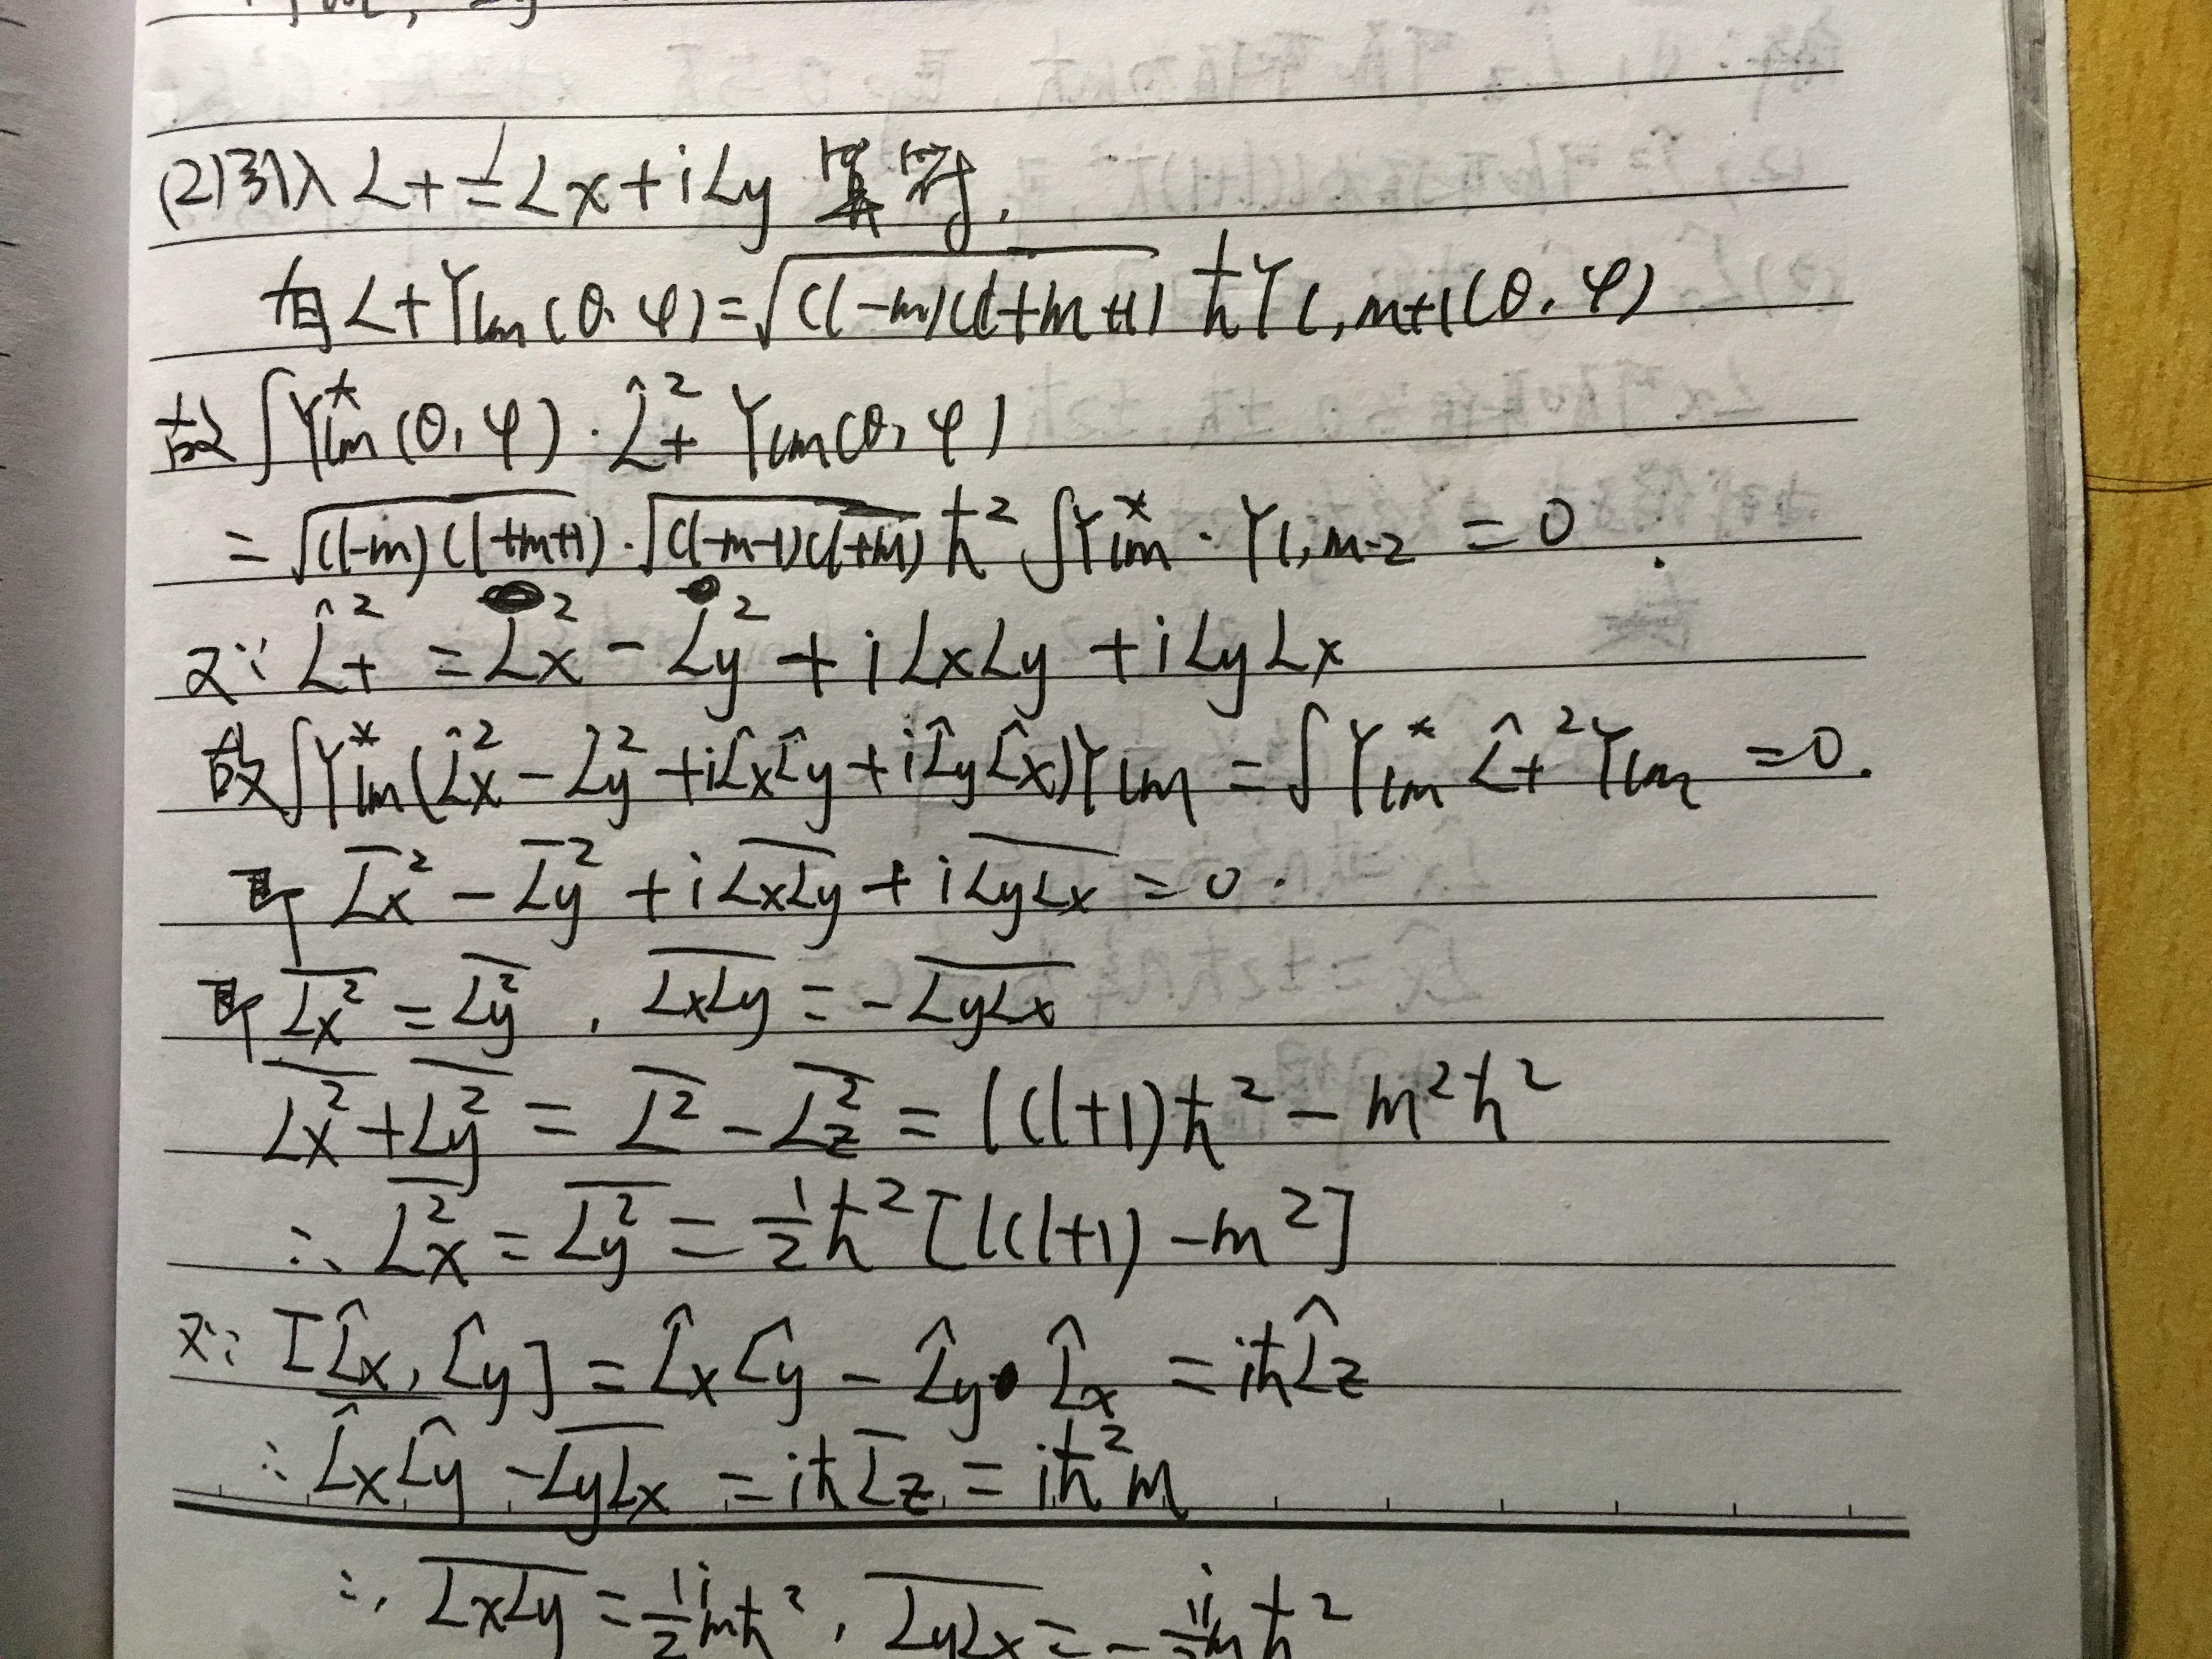 (2)引入 L+ = Lx + iLy 算符.
有 L+ Ylm (θ, φ) = √(l-m)(l+m+1) ħ Yl, m+1 (θ, φ)
故 ∫Ylm* (θ, φ) · L̂+² Ylm (θ, φ)
= √(l-m)(l+m+1) · √(l-m-1)(l+m) ħ² ∫Ylm* · Yl, m-2 = 0 .
又∵ L̂+² = Lx² - Ly² + iLxLy + iLyLx
故 ∫Ylm* (L̂x² - Ly² + iL̂xL̂y + iL̂yL̂x) Ylm = ∫Ylm* L̂+² Ylm = 0.
即 L̅x² - L̅y² + i\overline{LxLy} + i\overline{LyLx} = 0 .
即 \overline{Lx²} = \overline{Ly²} , \overline{LxLy} = -\overline{LyLx}
\overline{Lx²} + \overline{Ly²} = \overline{L²} - \overline{Lz²} = l(l+1)ħ² - m²ħ²
∴ \overline{Lx²} = \overline{Ly²} = ½ħ² [l(l+1) - m²]
又∵ [L̂x, L̂y] = L̂xL̂y - L̂y L̂x = iħL̂z
∴ \overline{L̂xL̂y} - \overline{LyLx} = iħL̅z = iħ²m
∴ \overline{LxLy} = ½imħ² , \overline{LyLx} = -½imħ²